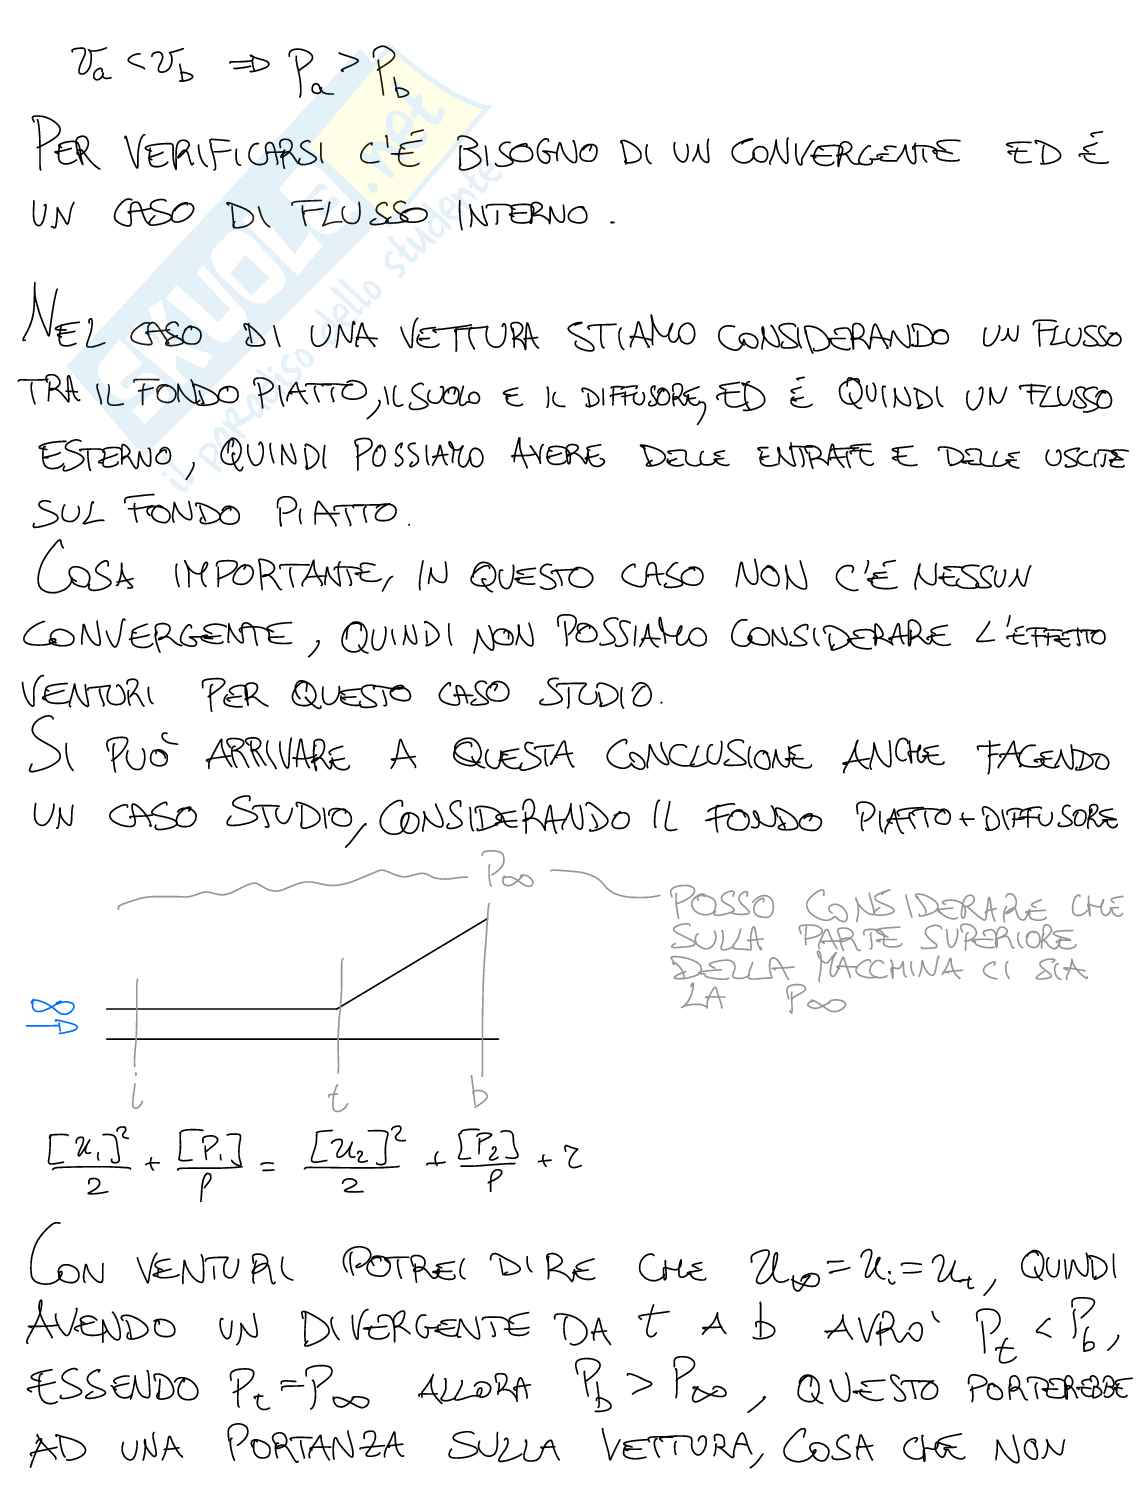 v_a < v_b ⇒ P_a > P_b
PER VERIFICARSI C'É BISOGNO DI UN CONVERGENTE ED É
UN CASO DI FLUSSO INTERNO.
NEL CASO DI UNA VETTURA STIAMO CONSIDERANDO UN FLUSSO
TRA IL FONDO PIATTO, IL SUOLO E IL DIFFUSORE, ED É QUINDI UN FLUSSO
ESTERNO, QUINDI POSSIAMO AVERE DELLE ENTRATE E DELLE USCITE
SUL FONDO PIATTO.
COSA IMPORTANTE, IN QUESTO CASO NON C'É NESSUN
CONVERGENTE, QUINDI NON POSSIAMO CONSIDERARE L'EFFETTO
VENTURI PER QUESTO CASO STUDIO.
SI PUÒ ARRIVARE A QUESTA CONCLUSIONE ANCHE FACENDO
UN CASO STUDIO, CONSIDERANDO IL FONDO PIATTO + DIFFUSORE
P∞
POSSO CONSIDERARE CHE
SULLA PARTE SUPERIORE
DELLA MACCHINA CI SIA
LA P∞
∞
i t b
[u_1]²/2 + [P_1]/ρ = [u_2]²/2 + [P_2]/ρ + r
CON VENTURI POTREI DIRE CHE u_∞ = u_i = u_t, QUINDI
AVENDO UN DIVERGENTE DA t A b AVRO' P_t < P_b,
ESSENDO P_t = P_∞ ALLORA P_b > P_∞, QUESTO PORTEREBBE
AD UNA PORTANZA SULLA VETTURA, COSA CHE NON
SKUOLA.net
il paradiso dello studente